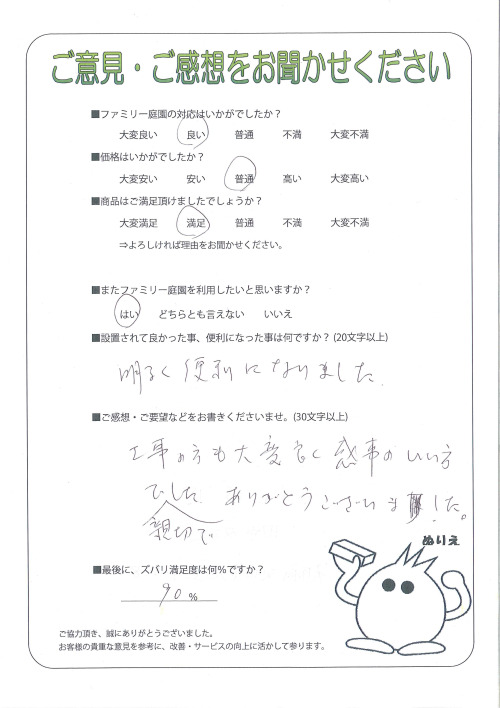 ご意見・ご感想をお聞かせください
■ファミリー庭園の対応はいかがでしたか？
大変良い 良い 普通 不満 大変不満
■価格はいかがでしたか？
大変安い 安い 普通 高い 大変高い
■商品はご満足頂けましたでしょうか？
大変満足 満足 普通 不満 大変不満
⇒よろしければ理由をお聞かせください。
■またファミリー庭園を利用したいと思いますか？
はい どちらとも言えない いいえ
■設置されて良かった事、便利になった事は何ですか？(20文字以上)
明るく便利になりました
■ご感想・ご要望などをお書きくださいませ。(30文字以上)
工事の方も大変良く感事のいい方
でした ありがとうございました。
親切で
ぬりえ
■最後に、ズバリ満足度は何%ですか？
90%
ご協力頂き、誠にありがとうございました。
お客様の貴重な意見を参考に、改善・サービスの向上に活かして参ります。